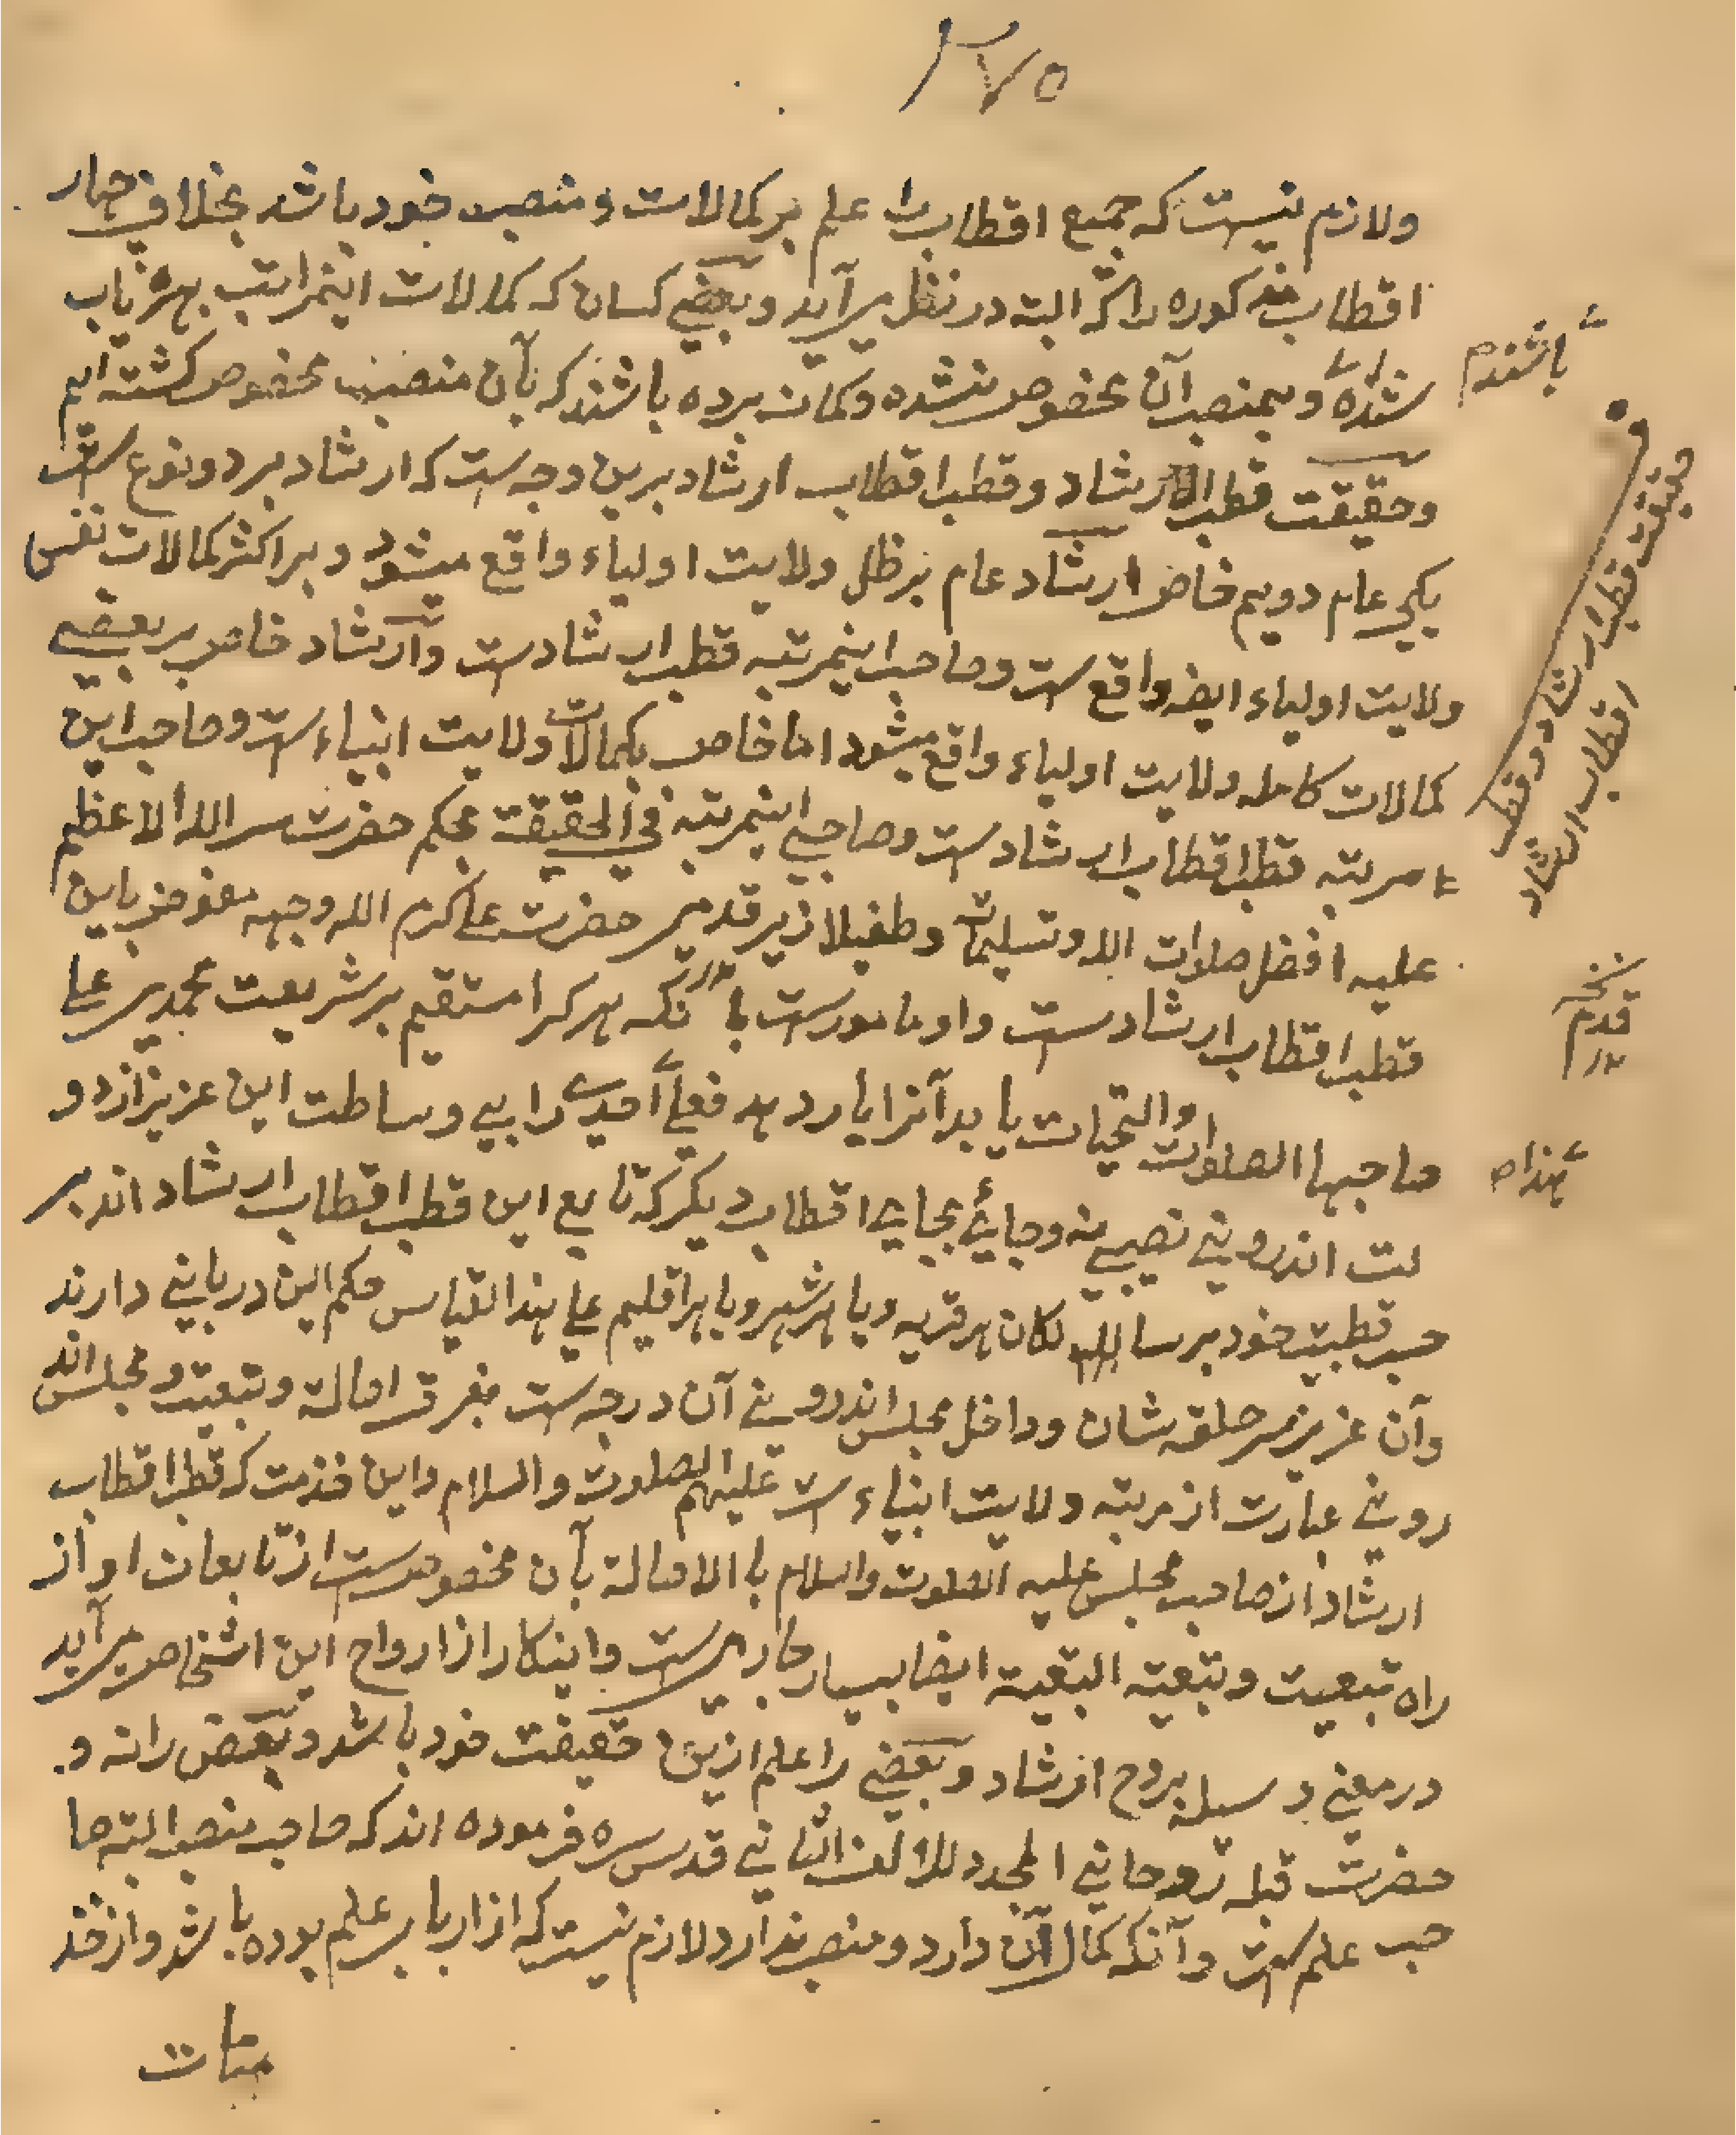 ۳۷۵
ولازم نیست که جمیع اقطاب را علم بر کمالات و منصب خود باشد بخلاف چهار
اقطاب مذکوره را که البته در نظر می آید و بعضی کسان که کمالات اینمراتب بهره یاب
شده و بمنصب آن مخصوص نشده و کمان برده باشند که بآن منصب مخصوص کشته ایم
باشندم
وحقیقت قطب الارشاد و قطب اقطاب ارشاد برین وجه ست که ارشاد بر دو نوع ست
یکی عام دویم خاص ارشاد عام بر ظل ولایت اولیاء واقع میشود و بر اکثر کمالات نفس
ولایت اولیاء ایضه واقع ست وصاحب اینمرتبه قطب ارشادست وارشاد خاص بر بعضی
کمالات کامله ولایت اولیاء واقع میشود اما خاص بکمالات ولایت انبیاء ست وصاحب این
حقیقت قطب ارشاد و قطب
اقطاب ارشاد
مرتبه قطب اقطاب ارشاد ست وصاحبی اینمرتبه فی الحقیقت بحکم حضرت سر الله الاعظم
علیه افضل صلوات الله وتسلیماته وطفیلا زیر قدم حضرت علی کرم الله وجهه مفوض باین
نسخه
قدم
قطب اقطاب ارشاد ست واو مامورست بانکه هر کرا مستقیم بر شریعت محمدی علی
صاحبها الصلوات والتحیات یابد آنرا یا رد دهد فعلی احدی را بی وساطت این عزیز از دو
بهذا
لت اندرونی نصیبی نه وجائی بجای اقطاب دیکر که تابع این قطب اقطاب ارشاد اند بر
حسب قطبیت خود بر سالکان هر قریه ویا هر شهر ویا هر اقلیم علی هذا القیاس حکم این دربانی دارند
وآن عزیز سر حلقه شان وداخل مجلس اندرونی آن درجه ست بفرق اصالة وتبعیت ومجلس اند
رونی عبارت از مرتبه ولایت انبیاء ست علیهم الصلوت والسلام واین خدمت که قطب اقطاب
ارشاد از صاحب مجلس علیه الصلوت والسلام با الاصالة بآن مخصوص ست از تابعان او از
راه تبعیت وتبعیته التبعیة ایضا بسیار جاری ست واینکار از ارواح این اشخاص می آید
در معنی وسیله بروح ارشاد وبعضی را علم ازین حقیقت خود باشد وبعض را نه و
حضرت قبله روحانی المجدد للالف الثانی قدس سره فرموده اند که صاحب منصب البته صا
حب علم ست وآنکه کمال آن دارد و منصب ندارد لازم نیست که از ارباب علم بوده باشد واز خد